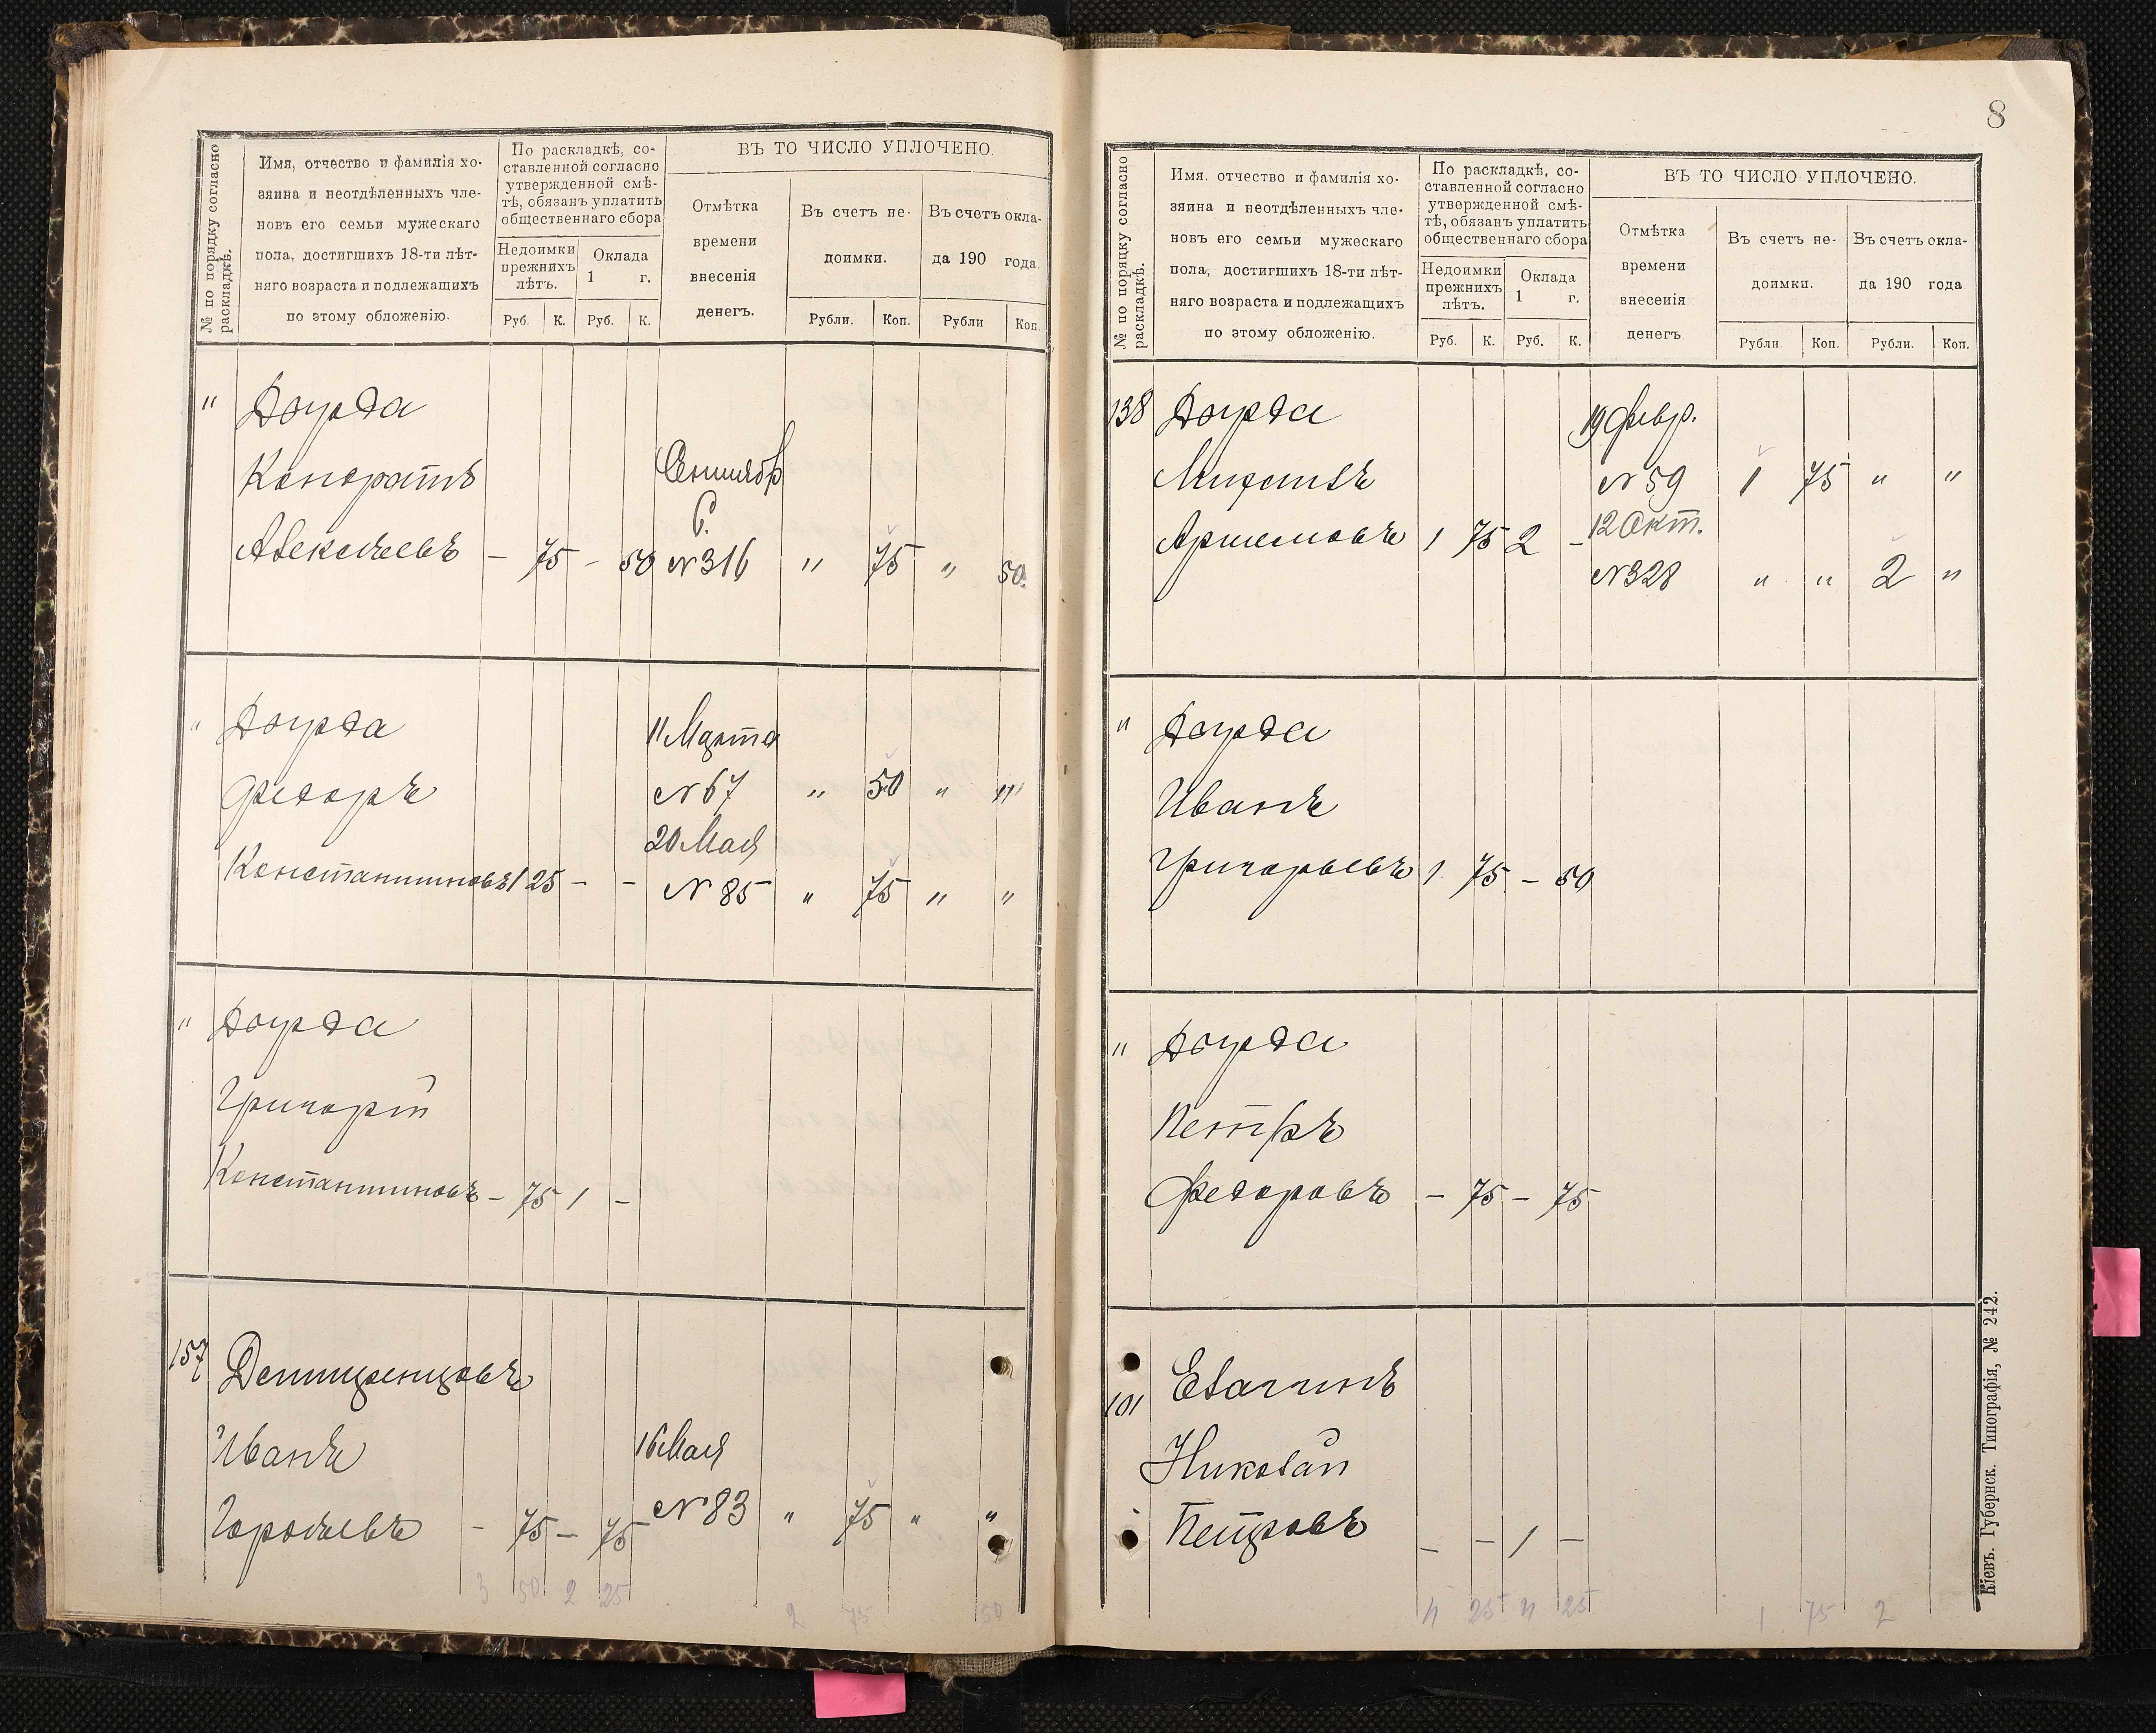 № по порядку согласно
раскладкѣ.
Имя, отчество и фамилія хо-
зяина и неотдѣленныхъ чле-
новъ его семьи мужескаго
пола, достигшихъ 18-ти лѣт-
няго возраста и подлежащихъ
по этому обложенію.
По раскладкѣ, со-
ставленной согласно
утвержденной смѣ-
тѣ, обязанъ уплатить
общественнаго сбора
Недоимки
прежнихъ
лѣтъ.
Оклада
1 г.
Руб. К. Руб. К.
ВЪ ТО ЧИСЛО УПЛОЧЕНО.
Отмѣтка
времени
внесенія
денегъ.
Въ счетъ не-
доимки.
Въ счетъ окла-
да 190 года.
Рубли. Коп. Рубли Коп.
" Доурда
Кондратъ Сентябр
6.
Алексѣевъ — 75 - 50 № 316 " 75 " 50.
" Доурда 11 Марта
Федоръ № 67 " 50 " "
20 Мая
Константиновъ 1 25 - - № 85 " 75 " "
" Доурда
Григорій
Константиновъ - 75 1 -
157
Иванъ 16 Мая
- 75 - 75 № 83 " 75 " "
3 50 2 25 2 75 50
8
№ по порядку согласно
раскладкѣ.
Имя. отчество и фамилія хо-
зяина и неотдѣленныхъ чле-
новъ его семьи мужескаго
пола, достигшихъ 18-ти лѣт-
няго возраста и подлежащихъ
по этому обложенію.
По раскладкѣ, со-
ставленной согласно
утвержденной смѣ-
тѣ, обязанъ уплатить
общественнаго сбора
Недоимки
прежнихъ
лѣтъ.
Оклада
1 г.
Руб. К. Руб. К.
ВЪ ТО ЧИСЛО УПЛОЧЕНО.
Отмѣтка
времени
внесенія
денегъ.
Въ счетъ не-
доимки.
Въ счетъ окла-
да 190 года
Рубли. Коп. Рубли. Коп.
138 Доурда 19 Февр.
№ 59 1 75 " "
12 Окт.
Артемовъ 1 75 2 -
№ 328 " " 2 "
" Доурда
Иванъ
Григорьевъ 1 75 - 50
" Доурда
Петръ
Федоровъ - 75 - 75
101 Елагинъ
Николай
Петровъ - - 1 -
4 25 4 25 1 75 2
Кіевъ. Губернск. Типографія, № 242.